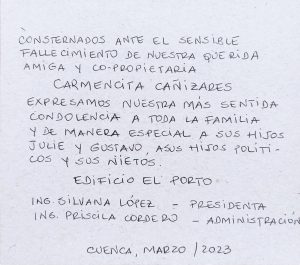 CONSTERNADOS ANTE EL SENSIBLE
FALLECIMIENTO DE NUESTRA QUERIDA
AMIGA Y CO-PROPIETARIA
CARMENCITA CAÑIZARES
EXPRESAMOS NUESTRA MÁS SENTIDA
CONDOLENCIA A TODA LA FAMILIA
Y DE MANERA ESPECIAL A SUS HIJOS
JULIE Y GUSTAVO, A SUS HIJOS POLITI-
COS Y SUS NIETOS.
EDIFICIO EL PORTO
ING. SILVANA LÓPEZ - PRESIDENTA
ING. PRISCILA CORDERO - ADMINISTRACIÓN
CUENCA, MARZO /2023